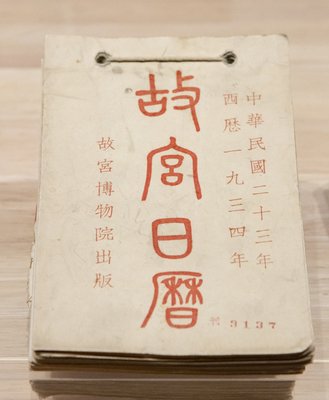 中華民國二十三年
西歷一九三四年
故宮日曆
故宮博物院出版
3137